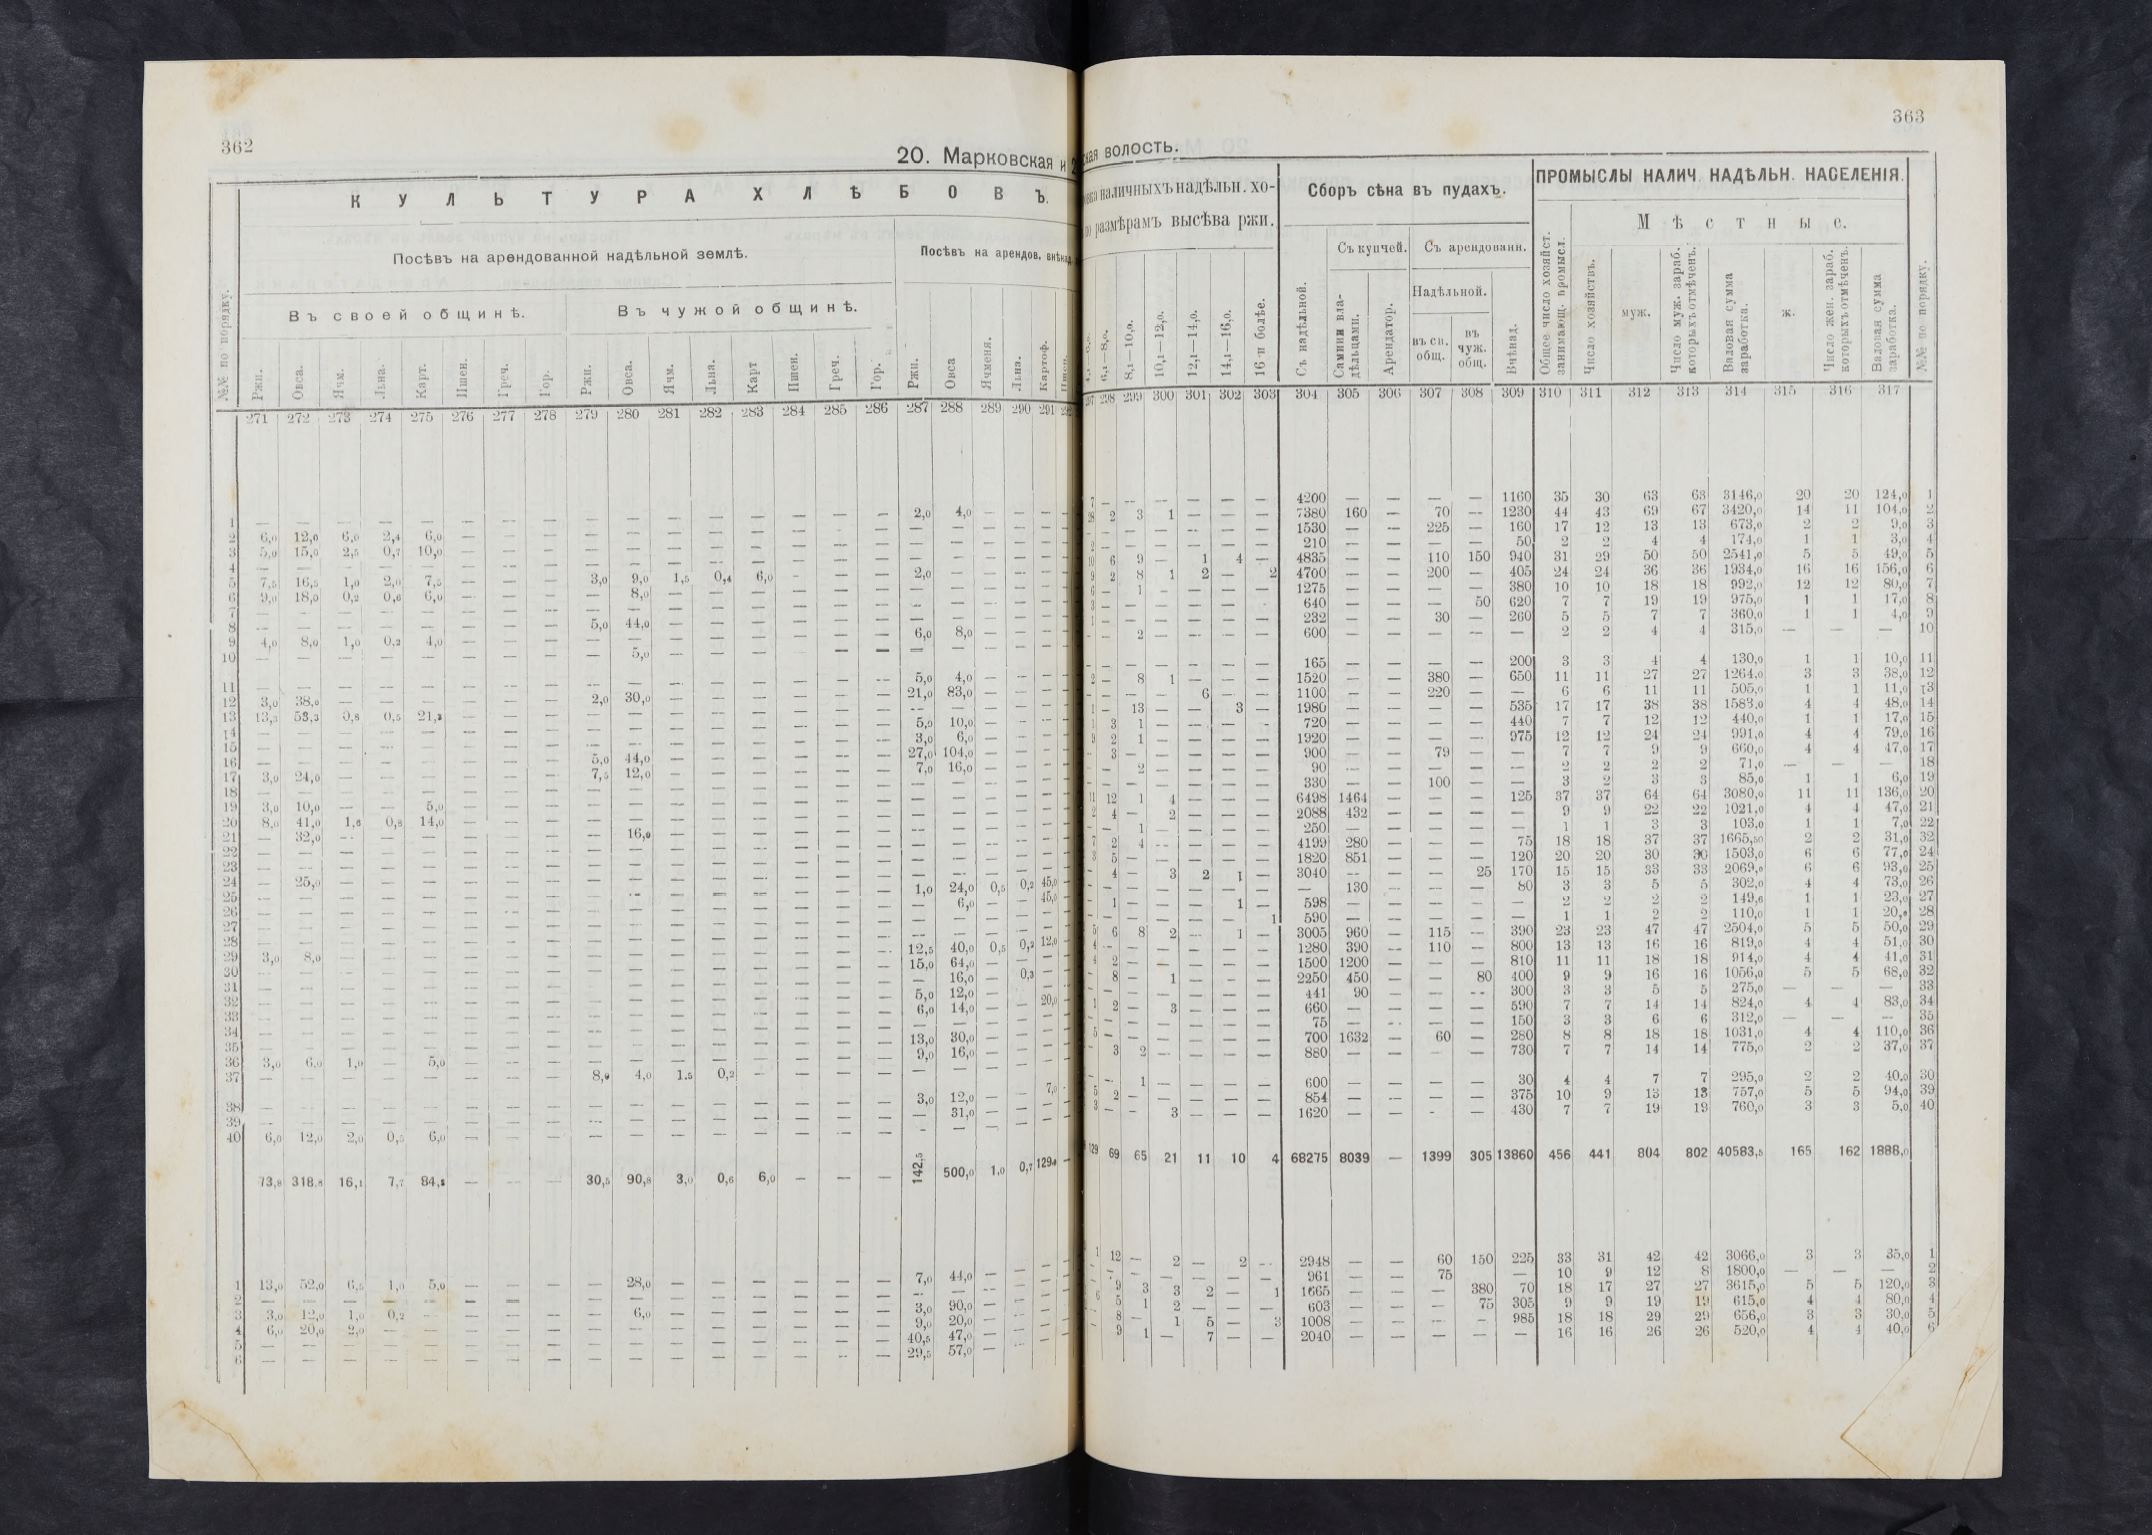 362
20. Марковская и 2
К У Л Ь Т У Р А Х Л Ѣ Б О В Ъ.
Посѣвъ на арендованной надѣльной землѣ.
Посѣвъ на арендов. внѣнад.
Въ своей общинѣ.
Въ чужой общинѣ.
№№ по порядку.
Ржи. Овса. Ячм. Льна. Карт. Пшен. Греч. Гор. Ржи. Овса. Ячм. Льна. Карт Пшен. Греч. Гор. Ржи. Овса Ячменя. Льна. Картоф. Пшен.
271 272 273 274 275 276 277 278 279 280 281 282 283 284 285 286 287 288 289 290 291
1 — — — — — — — — — — — — — — — — 2,0 4,0 — — —
2 6,0 12,0 6,0 2,4 6,0 — — — — — — — — — — — — — — — —
3 5,0 15,0 2,5 0,7 10,0 — — — — — — — — — — — — — — — —
4 — — — — — — — — — — — — — — — — — — — — —
5 7,5 16,5 1,0 2,0 7,5 — — — 3,0 9,0 1,5 0,4 6,0 — — — 2,0 — — — —
6 9,0 18,0 0,2 0,6 6,0 — — — — 8,0 — — — — — — — — — — —
7 — — — — — — — — — — — — — — — — — — — — —
8 — — — — — — — — 5,0 44,0 — — — — — — — — — — —
9 4,0 8,0 1,0 0,2 4,0 — — — — — — — — — — — 6,0 8,0 — — —
10 — — — — — — — — — 5,0 — — — — — — — — — — —
11 — — — — — — — — — — — — — — — — 5,0 4,0 — — —
12 3,0 38,0 — — — — — — 2,0 30,0 — — — — — — 21,0 83,0 — — —
13 13,3 53,3 0,8 0,5 21,3 — — — — — — — — — — — — — — — —
14 — — — — — — — — — — — — — — — — 5,0 10,0 — — —
15 — — — — — — — — — — — — — — — — 3,0 6,0 — — —
16 — — — — — — — — 5,0 44,0 — — — — — — 27,0 104,0 — — —
17 3,0 24,0 — — — — — — 7,5 12,0 — — — — — — 7,0 16,0 — — —
18 — — — — — — — — — — — — — — — — — — — — —
19 3,0 10,0 — — 5,0 — — — — — — — — — — — — — — — —
20 8,0 41,0 1,6 0,8 14,0 — — — — — — — — — — — — — — — —
21 — 32,0 — — — — — — — 16,0 — — — — — — — — — — —
22 — — — — — — — — — — — — — — — — — — — — —
23 — — — — — — — — — — — — — — — — — — — — —
24 — 25,0 — — — — — — — — — — — — — — — — — — —
25 — — — — — — — — — — — — — — — — 1,0 24,0 0,5 0,2 45,0
26 — — — — — — — — — — — — — — — — — 6,0 — — 45,0
27 — — — — — — — — — — — — — — — — — — — — —
28 — — — — — — — — — — — — — — — — — — — — —
29 3,0 8,0 — — — — — — — — — — — — — — 12,5 40,0 0,5 0,2 12,0
30 — — — — — — — — — — — — — — — — 15,0 64,0 — — —
31 — — — — — — — — — — — — — — — — — 16,0 — 0,3 —
32 — — — — — — — — — — — — — — — — 5,0 12,0 — — —
33 — — — — — — — — — — — — — — — — 6,0 14,0 — — 20,0
34 — — — — — — — — — — — — — — — — — — — — —
35 — — — — — — — — — — — — — — — — 13,0 30,0 — — —
36 3,0 6,0 1,0 — 5,0 — — — — — — — — — — — 9,0 16,0 — — —
37 — — — — — — — — 8,0 4,0 1,5 0,2 — — — — — — — — —
38 — — — — — — — — — — — — — — — — 3,0 12,0 — — 7,0
39 — — — — — — — — — — — — — — — — — 31,0 — — —
40 6,0 12,0 2,0 0,5 6,0 — — — — — — — — — — — — — — — —
73,8 318,8 16,1 7,7 84,8 — — — 30,5 90,8 3,0 0,6 6,0 — — — 142,5 500,0 1,0 0,7 129,0 —
1 13,0 52,0 6,5 1,0 5,0 — — — — 28,0 — — — — — — 7,0 44,0 — — —
2 — — — — — — — — — — — — — — — — — — — — —
3 3,0 12,0 1,0 0,2 — — — — — 6,0 — — — — — — 3,0 90,0 — — —
4 6,0 20,0 2,0 — — — — — — — — — — — — — 9,0 20,0 — — —
5 — — — — — — — — — — — — — — — — 40,5 47,0 — — —
6 — — — — — — — — — — — — — — — — 29,5 57,0 — — —
363
ская волость.
наличныхъ надѣльн. хо-
по размѣрамъ высѣва ржи.
Сборъ сѣна въ пудахъ.
ПРОМЫСЛЫ НАЛИЧ. НАДѢЛЬН. НАСЕЛЕНІЯ.
М ѣ с т н ы е.
Съ купчей. Съ арендованн.
Надѣльной.
6,1—8,0. 8,1—10,0. 10,1—12,0. 12,1—14,0. 14,1—16,0. 16 и болѣе. Съ надѣльной. Самими вла-дѣльцами. Арендатор. въ св. общ. въ чуж. общ. Внѣнад. Общее число хозяйст. занимающ. промысл. Число хозяйствъ. муж. Число муж. зараб. которыхъ отмѣченъ. Валовая сумма заработка. ж. Число жен. зараб. которыхъ отмѣченъ. Валовая сумма заработка. №№ по порядку.
297 298 299 300 301 302 303 304 305 306 307 308 309 310 311 312 313 314 315 316 317
7 — — — — — — 4200 — — — — 1160 35 30 63 63 3146,0 20 20 124,0 1
28 2 3 1 — — — 7380 160 — 70 — 1230 44 43 69 67 3420,0 14 11 104,0 2
— — — — — — 1530 — — 225 — 160 17 12 13 13 673,0 2 2 9,0 3
2 — — — — — — 210 — — — — 50 2 2 4 4 174,0 1 1 3,0 4
10 6 9 — 1 4 — 4835 — — 110 150 940 31 29 50 50 2541,0 5 5 49,0 5
9 2 8 1 2 — 2 4700 — — 200 — 405 24 24 36 36 1934,0 16 16 156,0 6
6 — 1 — — — — 1275 — — — — 380 10 10 18 18 992,0 12 12 80,0 7
3 — — — — — — 640 — — — 50 620 7 7 19 19 975,0 1 1 17,0 8
1 — — — — — — 232 — — 30 — 260 5 5 7 7 360,0 1 1 4,0 9
— — 2 — — — — 600 — — — — — 2 2 4 4 315,0 — — — 10
— — — — — — — 165 — — — — 200 3 3 4 4 130,0 1 1 10,0 11
2 — 8 1 — — — 1520 — — 380 — 650 11 11 27 27 1264,0 3 3 38,0 12
— — — — 6 — — 1100 — — 220 — — 6 6 11 11 505,0 1 1 11,0 13
1 — 13 — — 3 — 1980 — — — — 535 17 17 38 38 1583,0 4 4 48,0 14
1 3 1 — — — — 720 — — — — 440 7 7 12 12 440,0 1 1 17,0 15
9 2 1 — — — — 1920 — — — — 975 12 12 24 24 991,0 4 4 79,0 16
— 3 — — — — — 900 — — 79 — — 7 7 9 9 660,0 4 4 47,0 17
— — 2 — — — — 90 — — — — — 2 2 2 2 71,0 — — — 18
— — — — — — — 330 — — 100 — — 3 2 3 3 85,0 1 1 6,0 19
11 12 1 4 — — — 6498 1464 — — — 125 37 37 64 64 3080,0 11 11 136,0 20
2 4 — 2 — — — 2088 432 — — — — 9 9 22 22 1021,0 4 4 47,0 21
— — 1 — — — — 250 — — — — — 1 1 3 3 103,0 1 1 7,0 22
7 2 4 — — — — 4199 280 — — — 75 18 18 37 37 1665,50 2 2 31,0 32
3 5 — — — — — 1820 851 — — — 120 20 20 30 30 1503,0 6 6 77,0 24
— 4 — 3 2 1 — 3040 — — — 25 170 15 15 33 33 2069,0 6 6 93,0 25
— — — — — — — — 130 — — — 80 3 3 5 5 302,0 4 4 73,0 26
— 1 — — — 1 — 598 — — — — — 2 2 2 2 149,6 1 1 23,0 27
— — — — — — 1 590 — — — — — 1 1 2 2 110,0 1 1 20,0 28
5 6 8 2 — 1 — 3005 960 — 115 — 390 23 23 47 47 2504,0 5 5 50,0 29
4 — — — — — — 1280 390 — 110 — 800 13 13 16 16 819,0 4 4 51,0 30
4 2 — — — — — 1500 1200 — — — 810 11 11 18 18 914,0 4 4 41,0 31
— 8 — 1 — — — 2250 450 — — 80 400 9 9 16 16 1056,0 5 5 68,0 32
— — — — — — — 441 90 — — — 300 3 3 5 5 275,0 — — — 33
1 2 — 3 — — — 660 — — — — 590 7 7 14 14 824,0 4 4 83,0 34
— — — — — — — 75 — — — — 150 3 3 6 6 312,0 — — — 35
5 — — — — — — 700 1632 — 60 — 280 8 8 18 18 1031,0 4 4 110,0 36
— 3 2 — — — — 880 — — — — 730 7 7 14 14 775,0 2 2 37,0 37
— — 1 — — — — 600 — — — — 30 4 4 7 7 295,0 2 2 40,0 30
5 2 — — — — — 854 — — — — 375 10 9 13 13 757,0 5 5 94,0 39
3 — — 3 — — — 1620 — — — — 430 7 7 19 19 760,0 3 3 5,0 40
129 69 65 21 11 10 4 68275 8039 — 1399 305 13860 456 441 804 802 40583,5 165 162 1888,0
1 12 — 2 — 2 — 2948 — — 60 150 225 33 31 42 42 3066,0 3 3 35,0 1
— — — — — — — 961 — — 75 — 10 9 12 8 1800,0 — — — 2
6 9 3 3 2 — 1 1665 — — — 380 70 18 17 27 27 3615,0 5 5 120,0 3
5 1 2 — — — 603 — — — 75 305 9 9 19 19 615,0 4 4 80,0 4
8 — 1 5 — 3 1008 — — — — 985 18 18 29 29 656,0 3 3 30,0 5
9 1 — 7 — — 2040 — — — — — 16 16 26 26 520,0 4 4 40,0 6